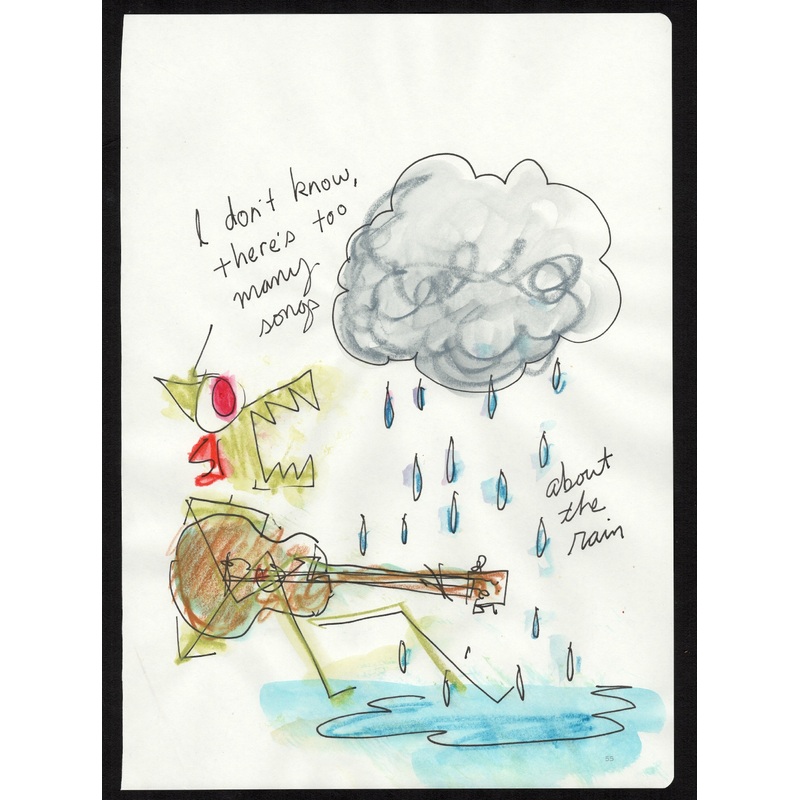 I don't know,
there's too
many
songs
about
the
rain
55